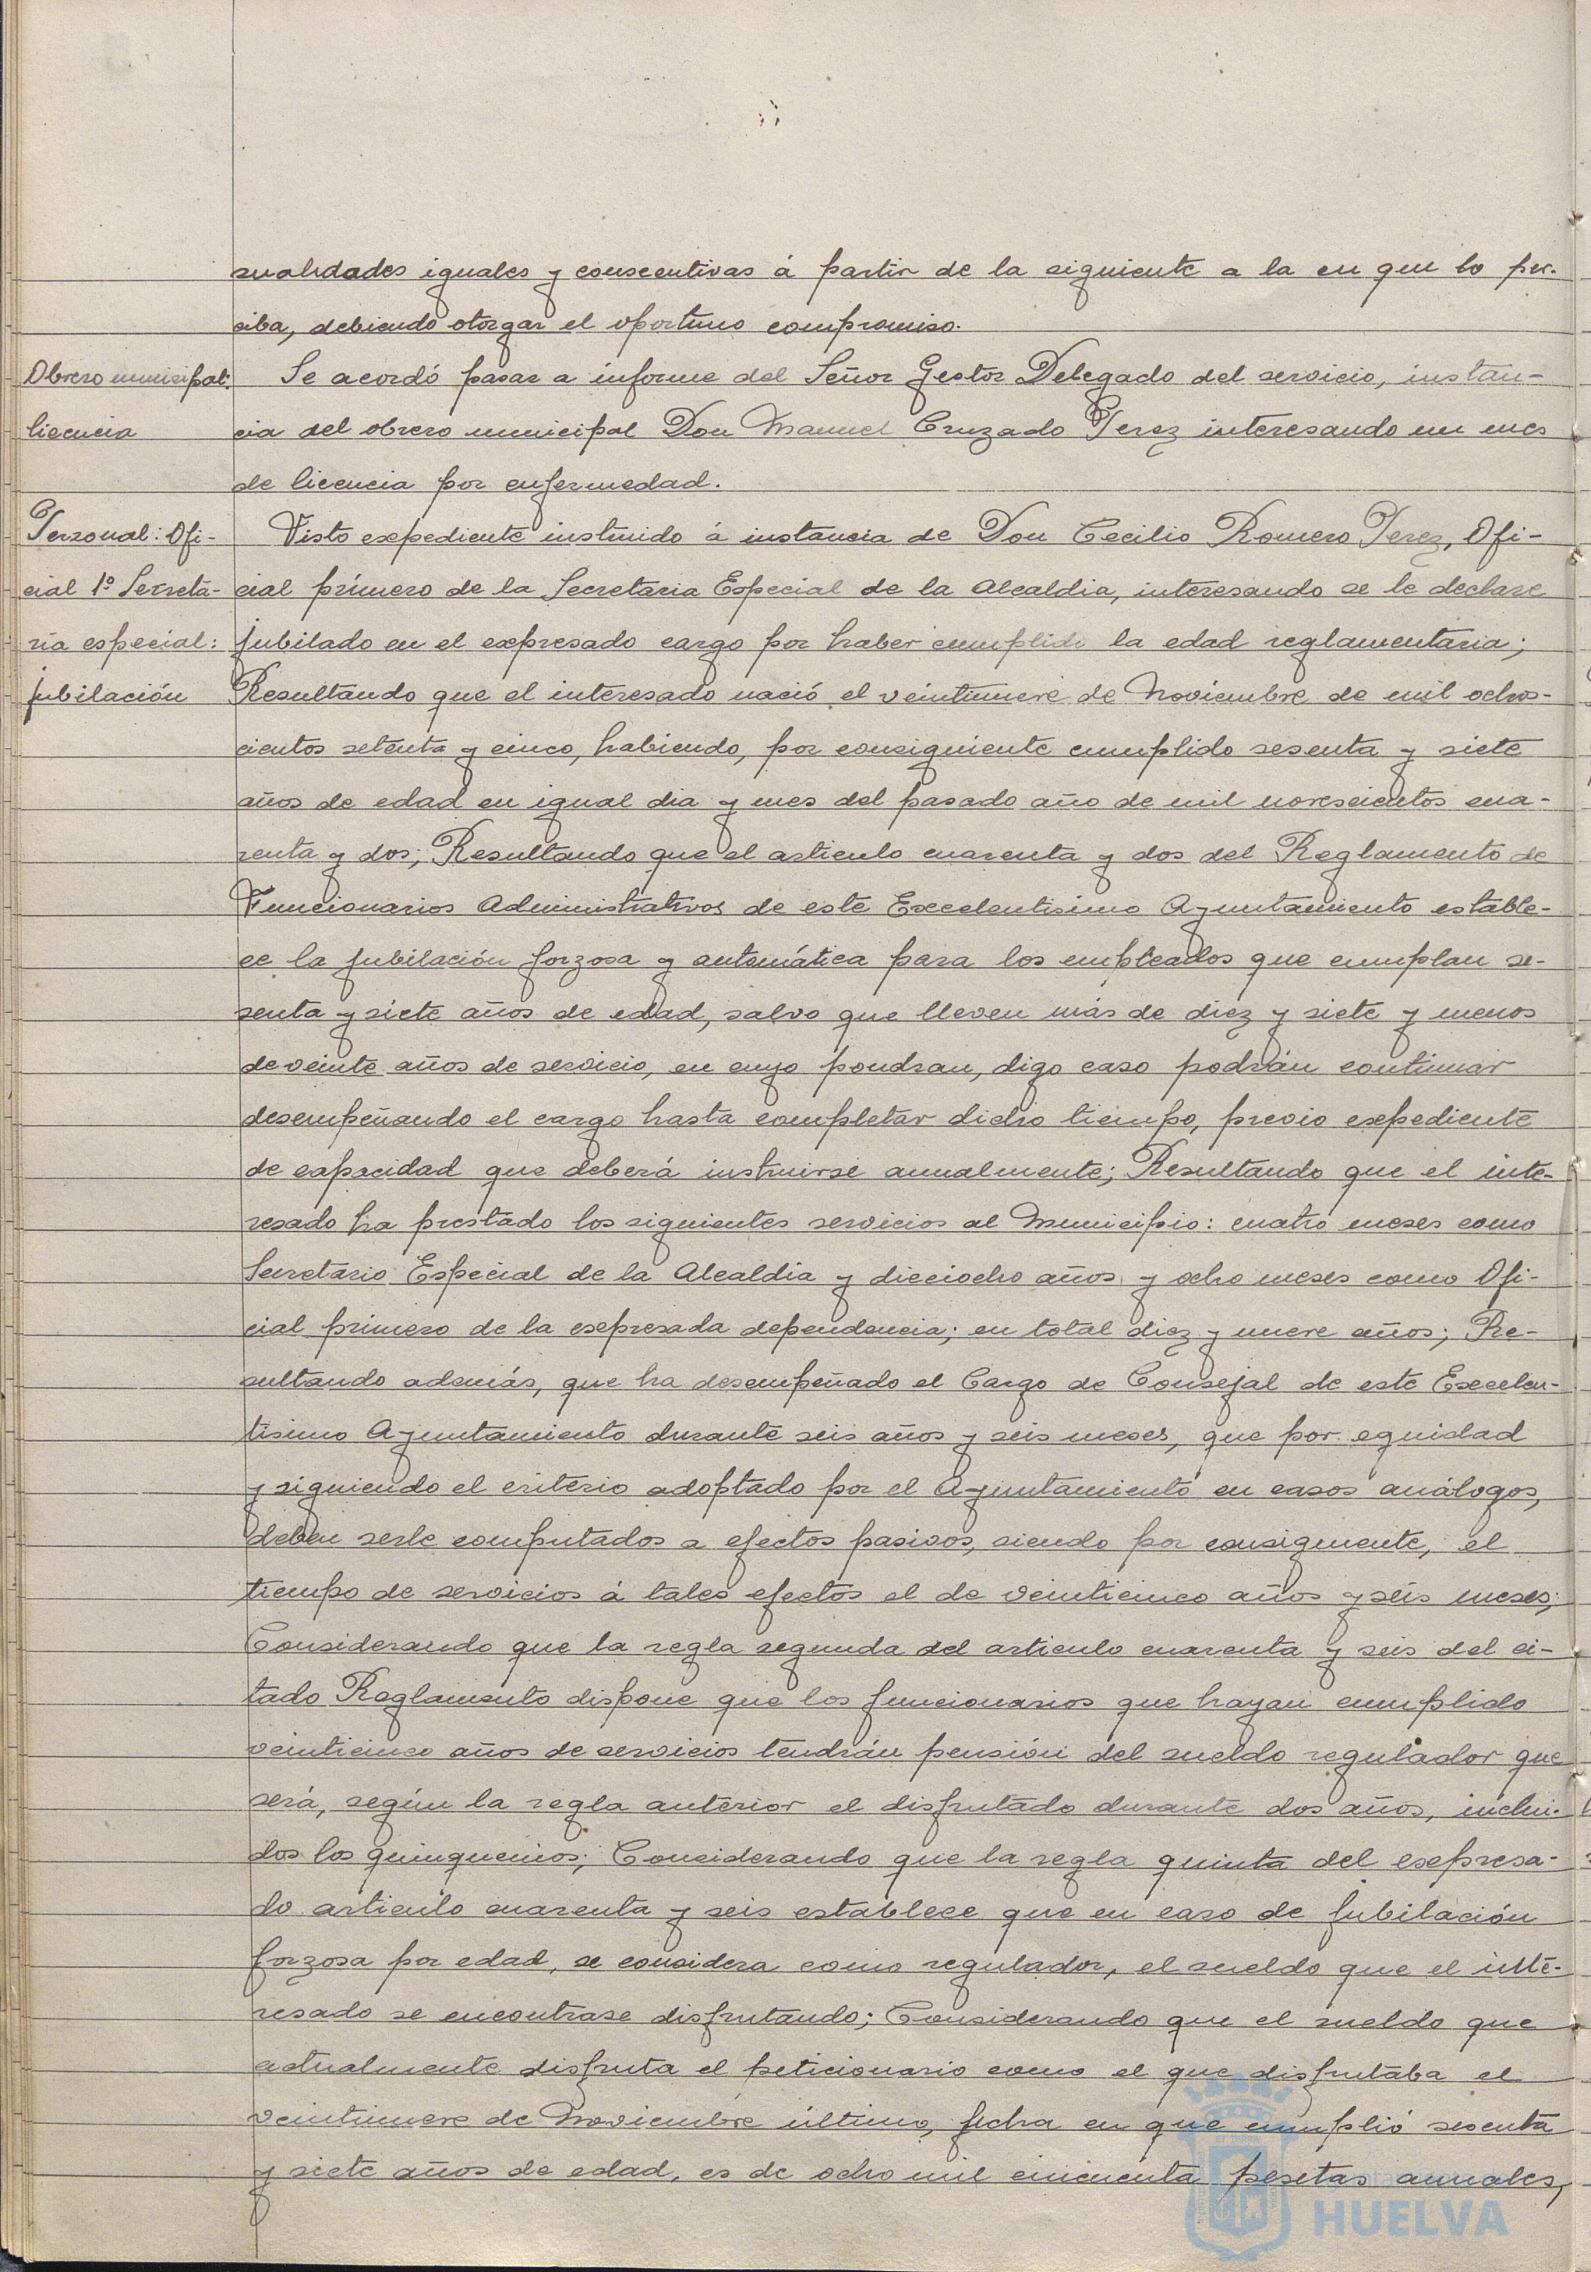 sualidades iguales y consecutivas á partir de la siguiente a la en que lo per-
ciba, debiendo otorgar el oportuno compromiso.
Obrero municipal:
licencia
Se acordó pasar a informe del Señor Gestor Delegado del servicio, instan-
cia del obrero municipal Don Manuel Cruzado Perez interesando un mes
de licencia por enfermedad.
Personal: Ofi-
cial 1º Secreta-
ría especial:
jubilación
Visto expediente instruido á instancia de Don Cecilio Romero Perez, Ofi-
cial primero de la Secretaria Especial de la Alcaldia, interesando se le declare
jubilado en el expresado cargo por haber cumplido la edad reglamentaria;
Resultando que el interesado nació el veintinueve de Noviembre de mil ochos-
cientos setenta y cinco, habiendo, por consiguiente cumplido sesenta y siete
años de edad en igual dia y mes del pasado año de mil novescientos cua-
renta y dos; Resultando que el articulo cuarenta y dos del Reglamento de
Funcionarios Administrativos de este Excelentisimo Ayuntamiento estable-
ce la jubilación forzosa y automática para los empleados que cumplan se-
senta y siete años de edad, salvo que lleven más de diez y siete y menos
de veinte años de servicio, en cuyo pondran, digo caso podrán continuar
desempeñando el cargo hasta completar dicho tiempo, previo expediente
de capacidad que deberá instruirse anualmente; Resultando que el inte-
resado ha prestado los siguientes servicios al Municipio: cuatro meses como
Secretario Especial de la Alcaldia y dieciocho años y ocho meses como Ofi-
cial primero de la expresada dependencia; en total diez y nueve años; Re-
sultando además, que ha desempeñado el Cargo de Consejal de este Excelen-
tisimo Ayuntamiento durante seis años y seis meses, que por equidad
y siguiendo el criterio adoptado por el Ayuntamiento en casos análogos,
deben serle computados a efectos pasivos, siendo por consiguiente, el
tiempo de servicios á tales efectos el de veinticinco años y seis meses;
Considerando que la regla segunda del articulo cuarenta y seis del ci-
tado Reglamento dispone que los funcionarios que hayan cumplido
veinticinco años de servicios tendrán pensión del sueldo regulador que
será, según la regla anterior el disfrutado durante dos años, inclui-
dos los quinquenios; Considerando que la regla quinta del expresa-
do articulo cuarenta y seis establece que en caso de jubilación
forzosa por edad, se considera como regulador, el sueldo que el inte-
resado se encontrase disfrutando; Considerando que el sueldo que
actualmente disfruta el peticionario como el que disfrutaba el
veintinueve de Noviembre último, fecha en que cumplió sesenta
y siete años de edad, es de ocho mil cincuenta pesetas anuales,
HUELVA